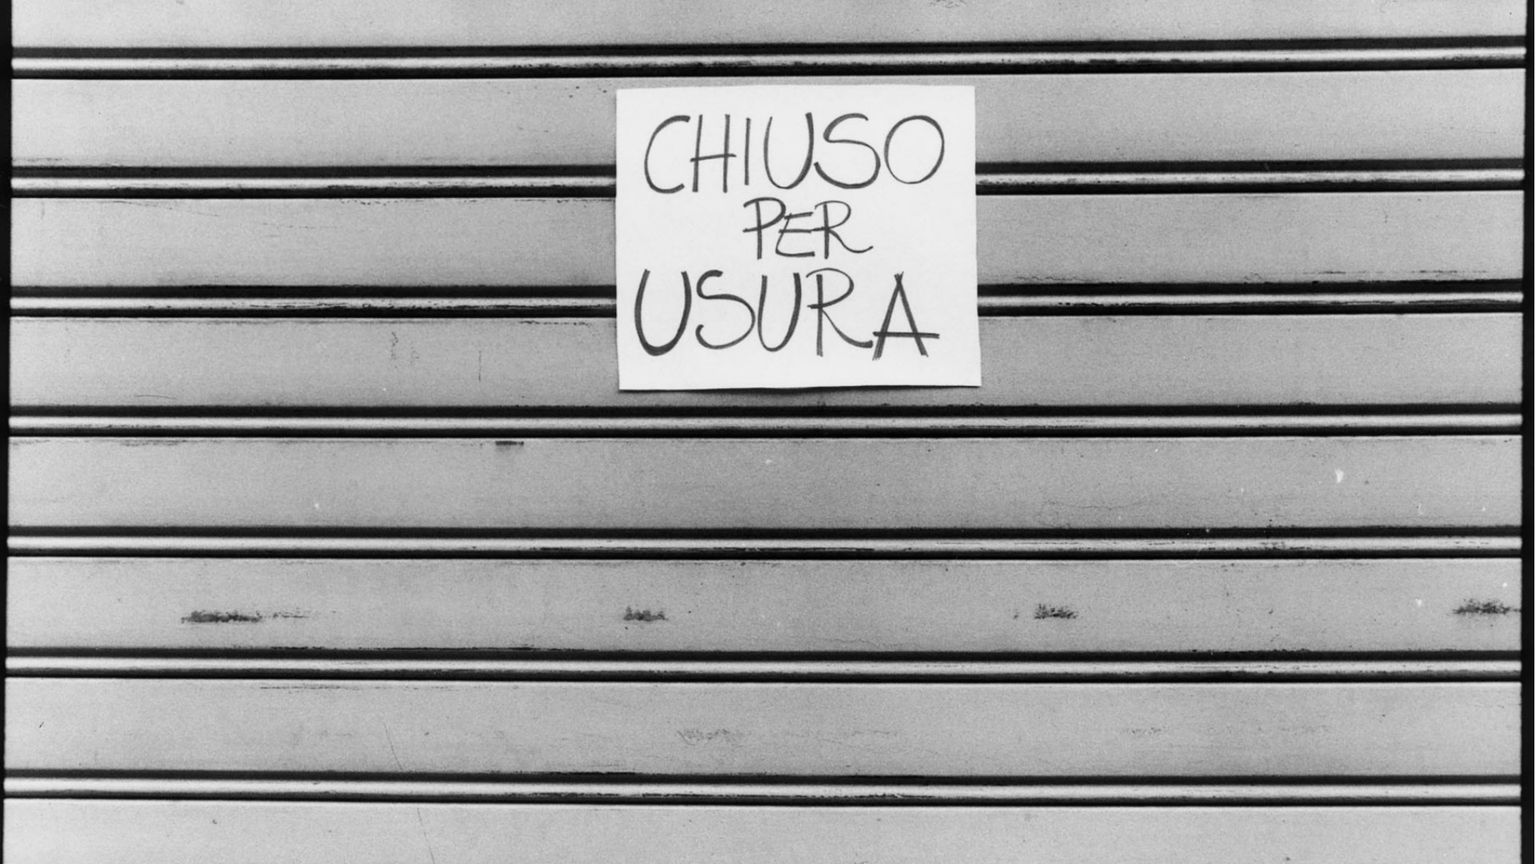 CHIUSO
PER
USURA